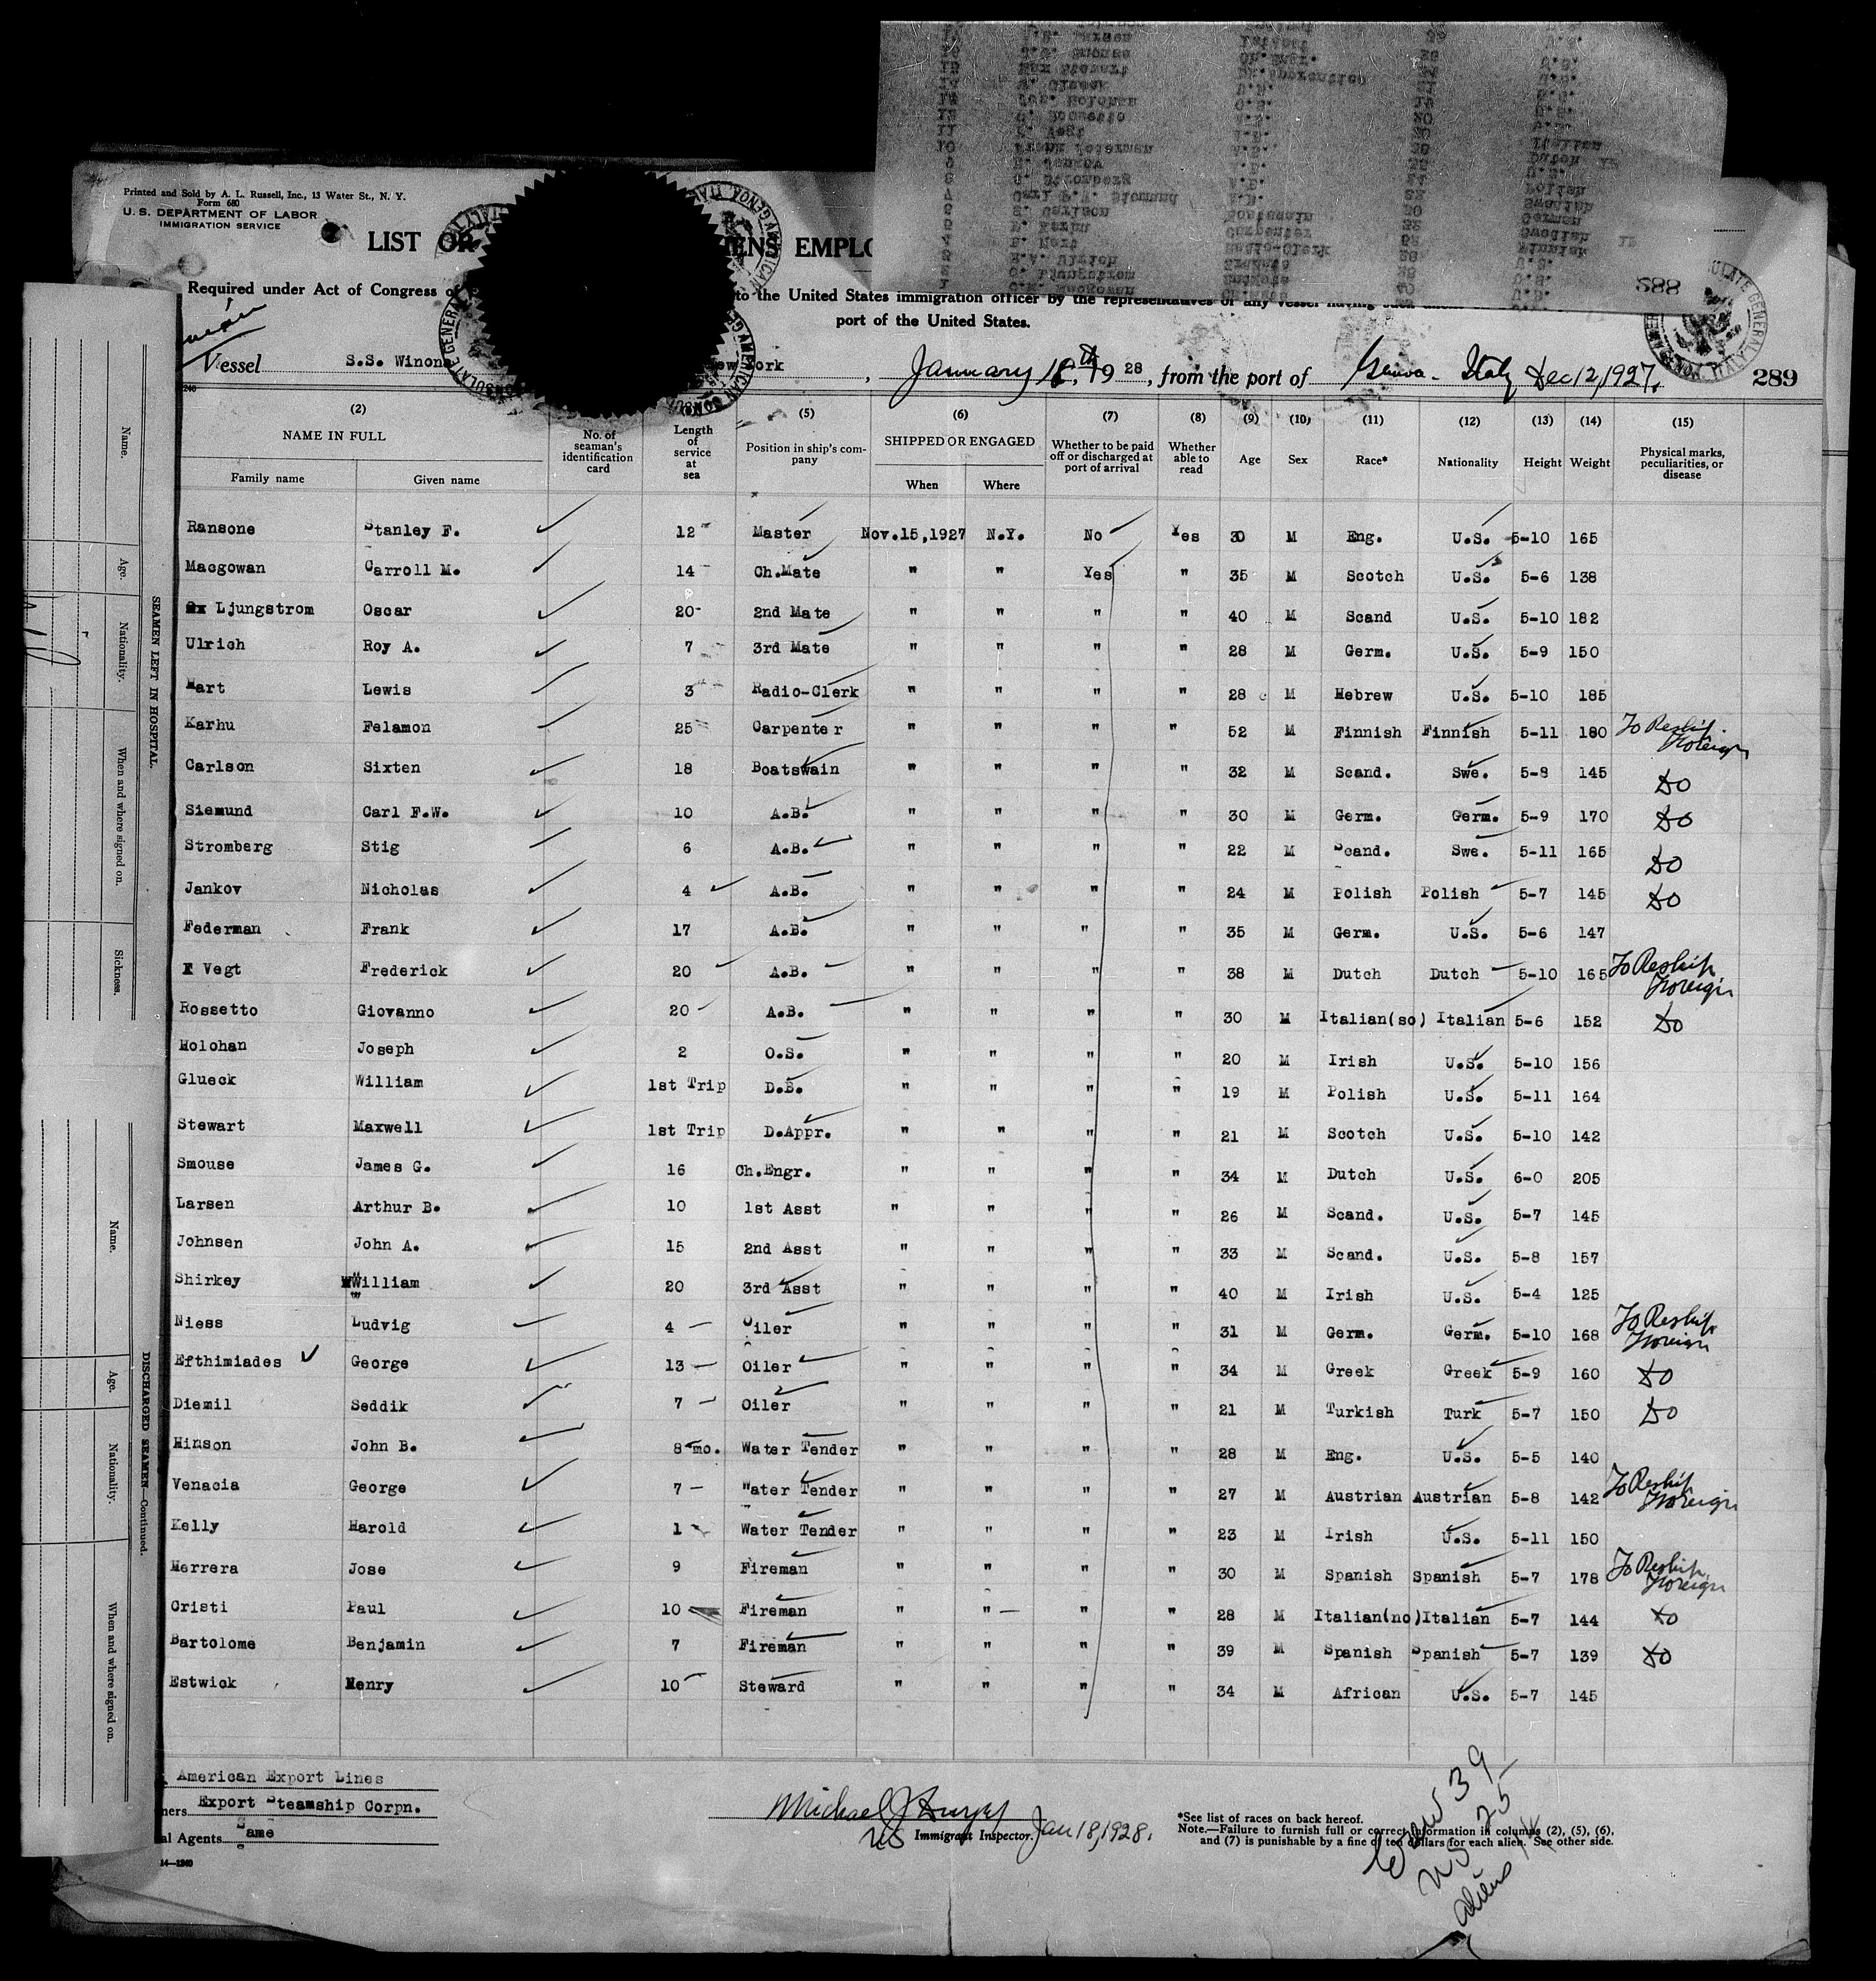 Printed and Sold by A. L. Russell, Inc., 13 Water St., N. Y.
Form 680
U. S. DEPARTMENT OF LABOR
IMMIGRATION SERVICE
LIST OR ENS EMPLO
Required under Act of Congress of to the United States immigration officer by the representatives of any vessel having
port of the United States.
Vessel S.S. Winona ew York , January 18,th 19 28 , from the port of Genoa - Italy Dec 12, 1927. 289
(2) (5) (6) (7) (8) (9) (10) (11) (12) (13) (14) (15)
NAME IN FULL No. of seaman's identification card Length of service at sea Position in ship's company SHIPPED OR ENGAGED Whether to be paid off or discharged at port of arrival Whether able to read Age Sex Race* Nationality Height Weight Physical marks, peculiarities, or disease
Family name Given name When Where
Ransone Stanley F. 12 Master Nov.15,1927 N.Y. No Yes 30 M Eng. U.S. 5-10 165
Macgowan Carroll M. 14 Ch.Mate " " Yes " 35 M Scotch U.S. 5-6 138
Ljungstrom Oscar 20 2nd Mate " " " " 40 M Scand U.S. 5-10 182
Ulrich Roy A. 7 3rd Mate " " " " 28 M Germ. U.S. 5-9 150
Hart Lewis 3 Radio-Clerk " " " " 28 M Hebrew U.S. 5-10 185
Karhu Felamon 25 Carpenter " " " " 52 M Finnish Finnish 5-11 180 To Reship Foreign
Carlson Sixten 18 Boatswain " " " " 32 M Scand. Swe. 5-8 145 Do
Siemund Carl F.W. 10 A.B. " " " " 30 M Germ. Germ. 5-9 170 Do
Stromberg Stig 6 A.B. " " " " 22 M Scand. Swe. 5-11 165 Do
Jankov Nicholas 4 A.B. " " " " 24 M Polish Polish 5-7 145 Do
Federman Frank 17 A.B. " " " " 35 M Germ. U.S. 5-6 147
Vegt Frederick 20 A.B. " " " " 38 M Dutch Dutch 5-10 165 To Reship Foreign
Rossetto Giovanno 20 A.B. " " " " 30 M Italian(so) Italian 5-6 152 Do
Holohan Joseph 2 O.S. " " " " 20 M Irish U.S. 5-10 156
Glueck William 1st Trip D.B. " " " " 19 M Polish U.S. 5-11 164
Stewart Maxwell 1st Trip D.Appr. " " " " 21 M Scotch U.S. 5-10 142
Smouse James G. 16 Ch.Engr. " " " " 34 M Dutch U.S. 6-0 205
Larsen Arthur B. 10 1st Asst " " " " 26 M Scand. U.S. 5-7 145
Johnsen John A. 15 2nd Asst " " " " 33 M Scand. U.S. 5-8 157
Shirkey William 20 3rd Asst " " " " 40 M Irish U.S. 5-4 125
Niess Ludvig 4 Oiler " " " " 31 M Germ. Germ. 5-10 168 To Reship Foreign
Efthimiades George 13 Oiler " " " " 34 M Greek Greek 5-9 160 Do
Diemil Seddik 7 Oiler " " " " 21 M Turkish Turk 5-7 150 Do
Hinson John B. 8 mo. Water Tender " " " " 28 M Eng. U.S. 5-5 140
Venacia George 7 Water Tender " " " " 27 M Austrian Austrian 5-8 142 To Reship Foreign
Kelly Harold 1 Water Tender " " " " 23 M Irish U.S. 5-11 150
Herrera Jose 9 Fireman " " " " 30 M Spanish Spanish 5-7 178 To Reship Foreign
Cristi Paul 10 Fireman " " " " 28 M Italian(no) Italian 5-7 144 Do
Bartolome Benjamin 7 Fireman " " " " 39 M Spanish Spanish 5-7 139 Do
Estwick Henry 10 Steward " " " " 34 M African U.S. 5-7 145
American Export Lines
ners Export Steamship Corpn.
al Agents Same
14—1240
Michael J.
US Immigrant Inspector. Jan 18, 1928.
*See list of races on back hereof.
Note.—Failure to furnish full or correct information in columns (2), (5), (6),
and (7) is punishable by a fine of ten dollars for each alien. See other side.
Crew 39
US 25
Aliens 14
SEAMEN LEFT IN HOSPITAL.
Name.
Age.
Nationality.
When and where signed on.
Sickness.
DISCHARGED SEAMEN—Continued.
Name.
Age.
Nationality.
When and where signed on.